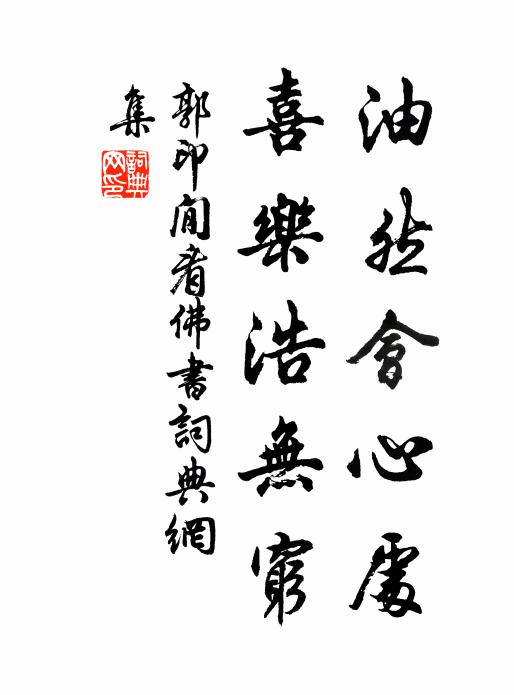 油然會心處
喜樂浩無窮
郭印閒看佛書詞典網
集
詞典網印